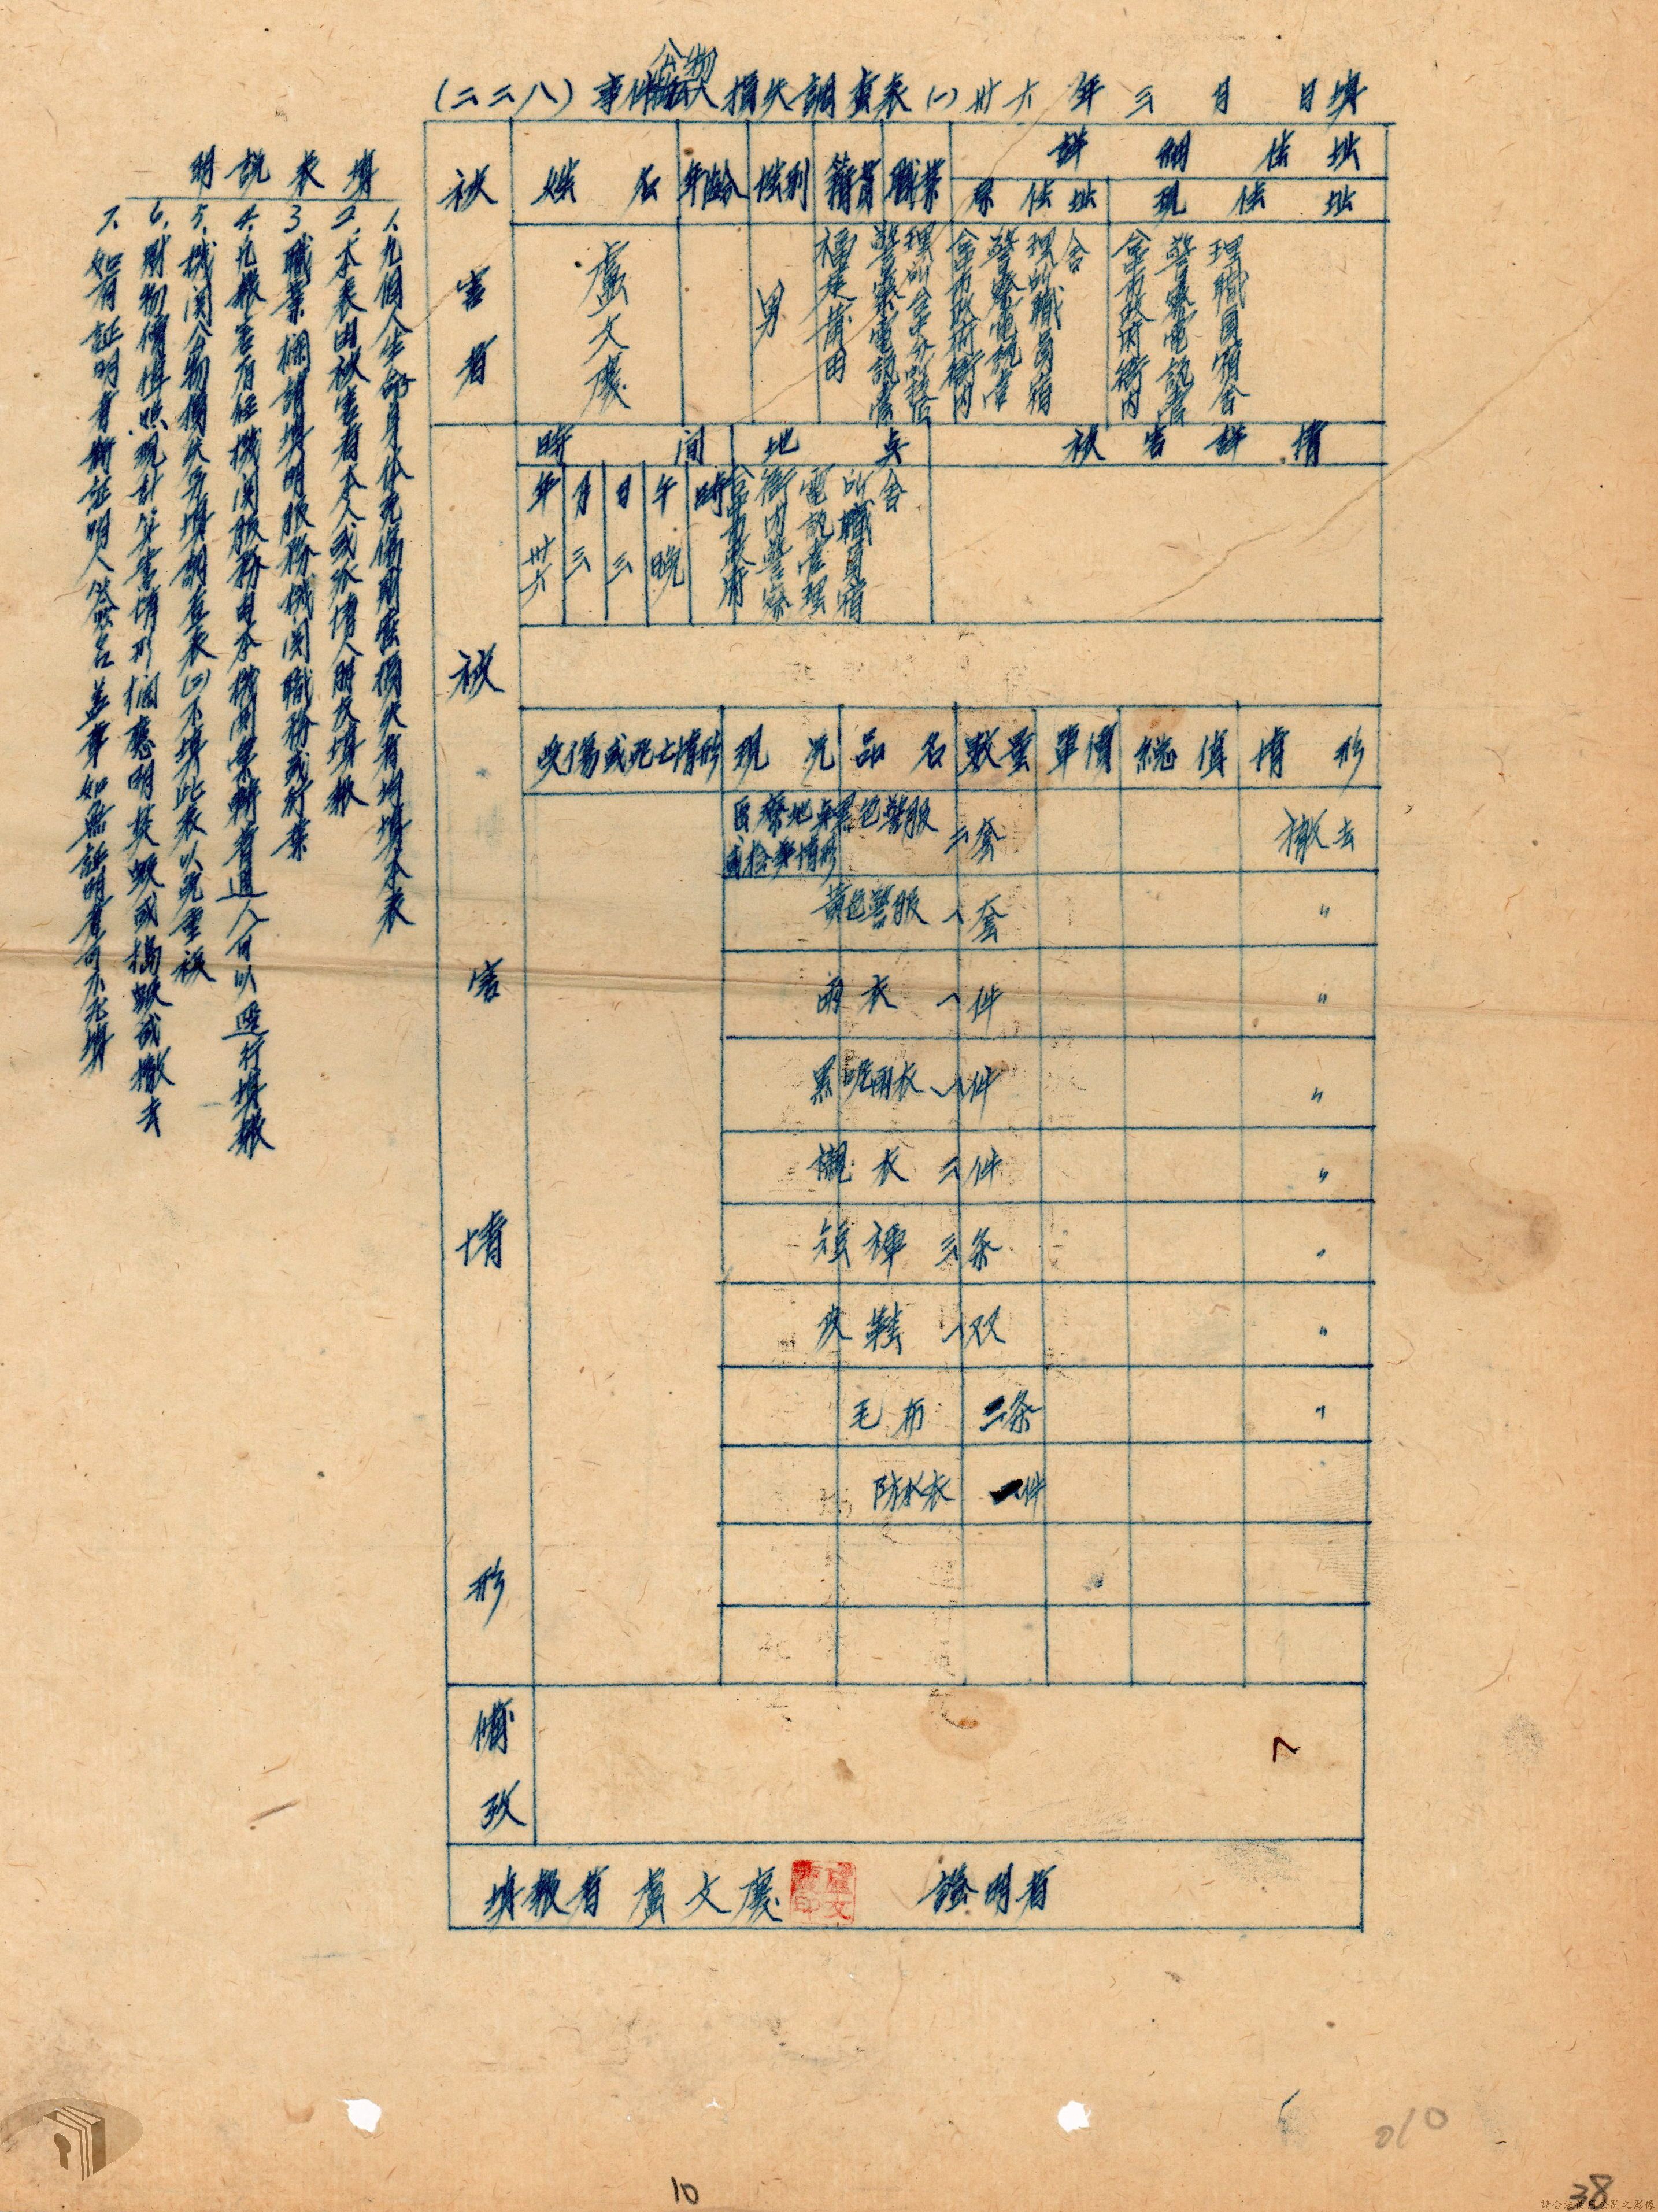 公物
(二二八)事件 損失調查表(一) 卅六年三月 日填
被害者
姓名
年齡
性別
籍貫
職業
詳細住址
原住址
現住址
盧文慶
男
福建莆田
警察電訊管
理所台中分所
台中市政府街內
警察電訊管
理所職員宿
舍
台中市政府街內
警察電訊管
理職員宿舍
被害情形
時間
地點
被害詳情
年
月
日
午
時
卅六
三
三
晚
台中市政府
街內警察
電訊管理
所職員宿
舍
受傷或死亡情形
現況
品名
數量
單價
總值
情形
黑色警服 二套 撤去
黃色警服 一套 〃
雨衣 一件 〃
黑呢雨衣 一件 〃
襯衣 二件 〃
短褲 三条 〃
皮鞋 一双 〃
毛布 二条 〃
防水衣 一件
備攷
填報者 盧文慶
證明者
填表說明
1.凡個人生命身体死傷財產損失者均填本表
2.本表由被害者本人或親人朋友填報
3.職業欄請填明服務機関職務或行業
4.凡報害者經機関服務由本機関彙轉者週人可以逕行填報
5.機関公物損失另填調查表(二)不填此表以免重複
6.財物價值照現計算害情形欄應明焚毀或搗毀或撤去
7.如有証明者衛証明人簽名蓋章如無証明者可不充填
10
010
38